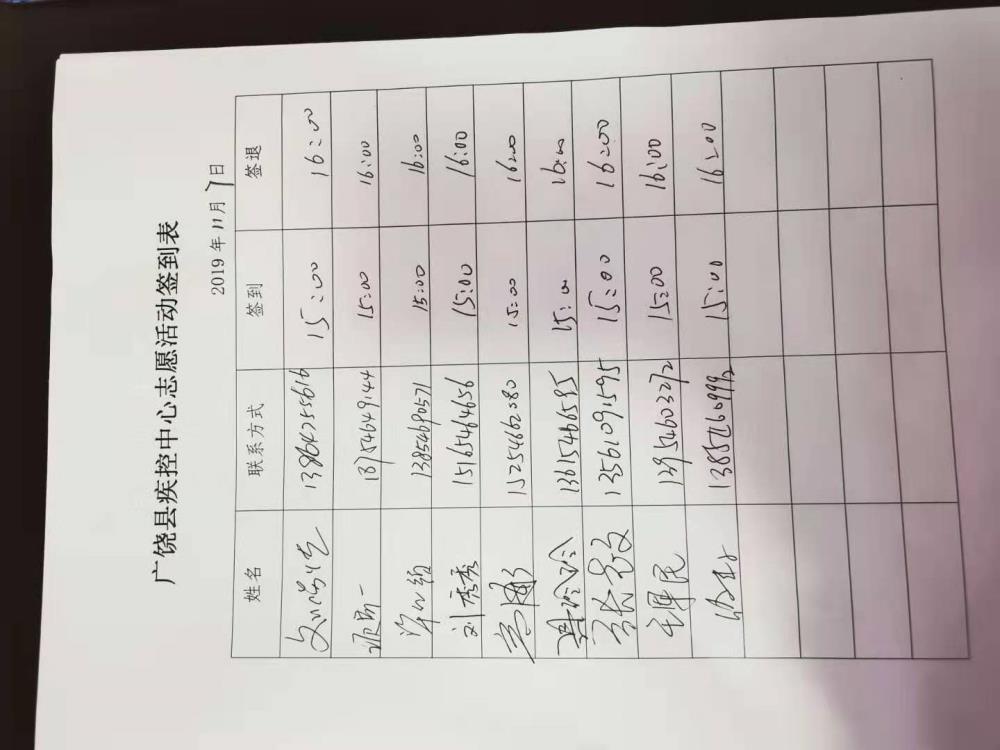 广饶县疾控中心志愿活动签到表
2019年11月7日
姓名 联系方式 签到 签退
13864755616 15:00 16:00
18754649144 15:00 16:00
13854690571 15:00 16:00
刘秀秀 15165464656 15:00 16:00
15254662080 15:00 16:00
13615466585 15:00 16:00
13561091595 15:00 16:00
13954603272 15:00 16:00
15:00 16:00